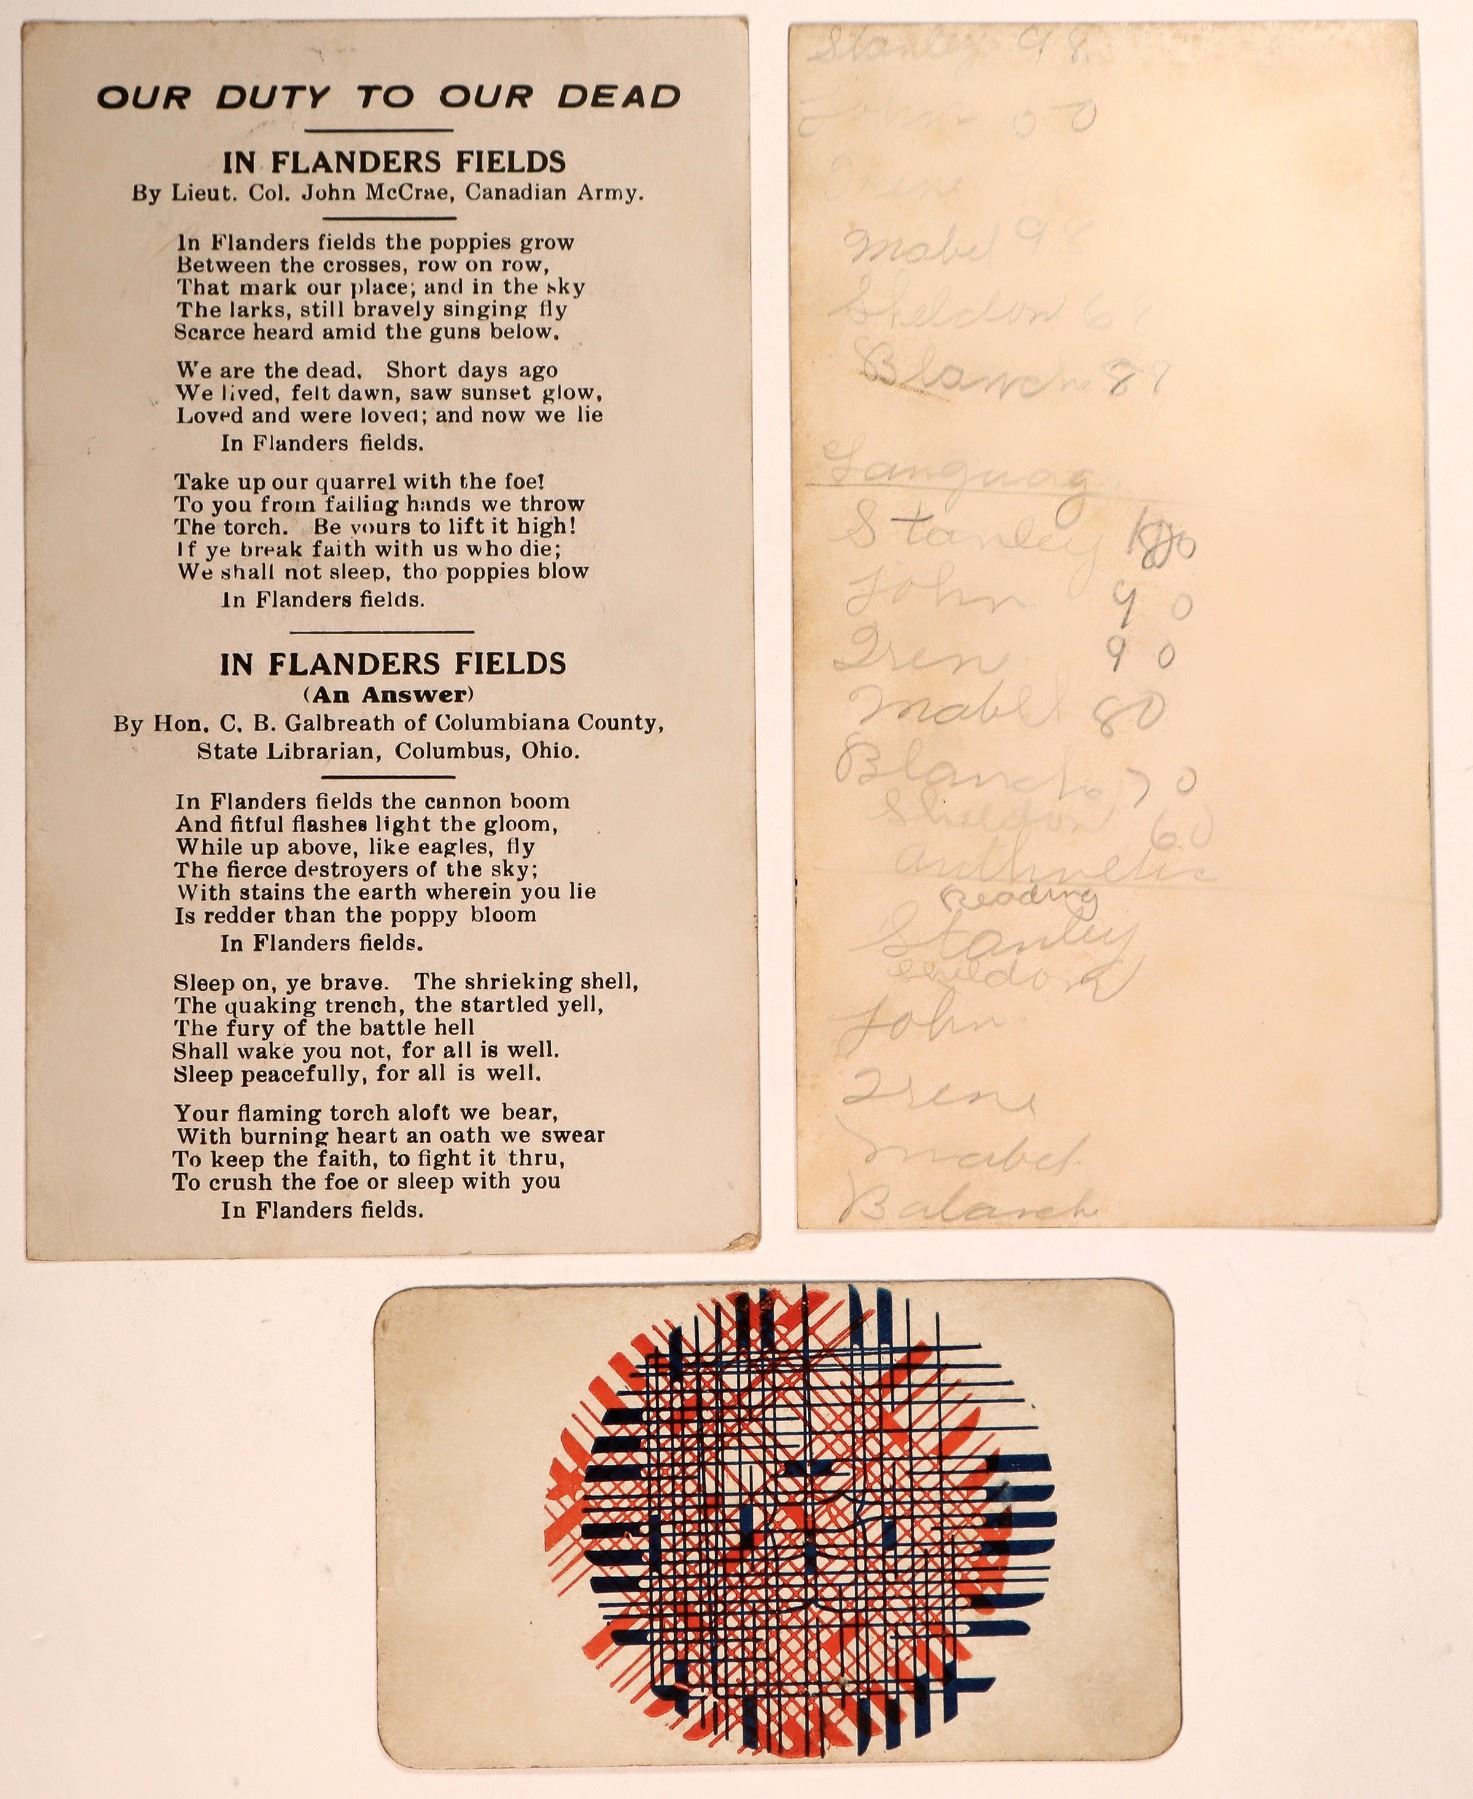 OUR DUTY TO OUR DEAD
IN FLANDERS FIELDS
By Lieut. Col. John McCrae, Canadian Army.
In Flanders fields the poppies grow
Between the crosses, row on row,
That mark our place; and in the sky
The larks, still bravely singing fly
Scarce heard amid the guns below.
We are the dead. Short days ago
We lived, felt dawn, saw sunset glow,
Loved and were loved; and now we lie
In Flanders fields.
Take up our quarrel with the foe!
To you from failing hands we throw
The torch. Be yours to lift it high!
If ye break faith with us who die;
We shall not sleep, tho poppies blow
In Flanders fields.
IN FLANDERS FIELDS
(An Answer)
By Hon. C. B. Galbreath of Columbiana County,
State Librarian, Columbus, Ohio.
In Flanders fields the cannon boom
And fitful flashes light the gloom,
While up above, like eagles, fly
The fierce destroyers of the sky;
With stains the earth wherein you lie
Is redder than the poppy bloom
In Flanders fields.
Sleep on, ye brave. The shrieking shell,
The quaking trench, the startled yell,
The fury of the battle hell
Shall wake you not, for all is well.
Sleep peacefully, for all is well.
Your flaming torch aloft we bear,
With burning heart an oath we swear
To keep the faith, to fight it thru,
To crush the foe or sleep with you
In Flanders fields.
Stanley 98
John
Mabel 98
Sheldon
Blanche 87
Languag
Stanley
John 90
Iren 90
Mabel 80
Blanche 70
Sheldon 60
Reading
Stanley
Sheldon
John
Irene
Mabel